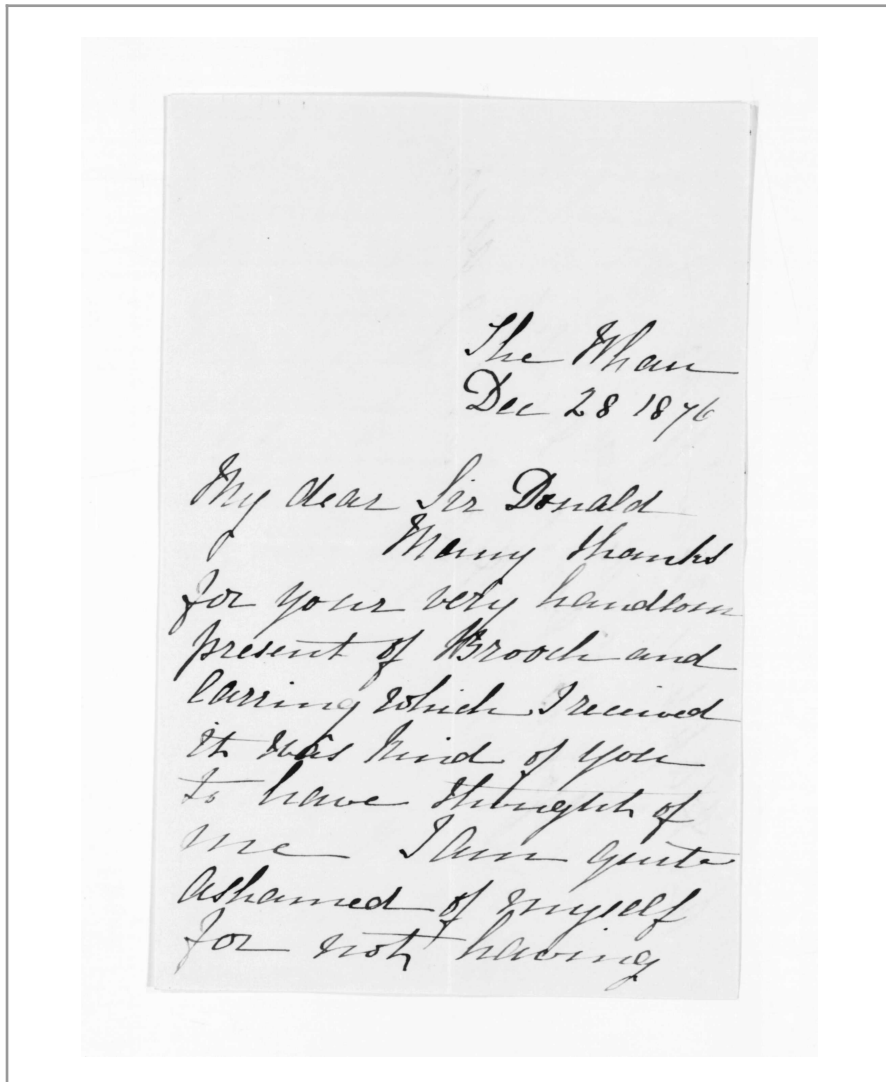 The Whau
Dec 28 1876
My dear Sir Donald
Many thanks
for your very handsom
present of Brooch and
Earring which I received
it was kind of you
to have thought of
me I am quite
ashamed of myself
for not having